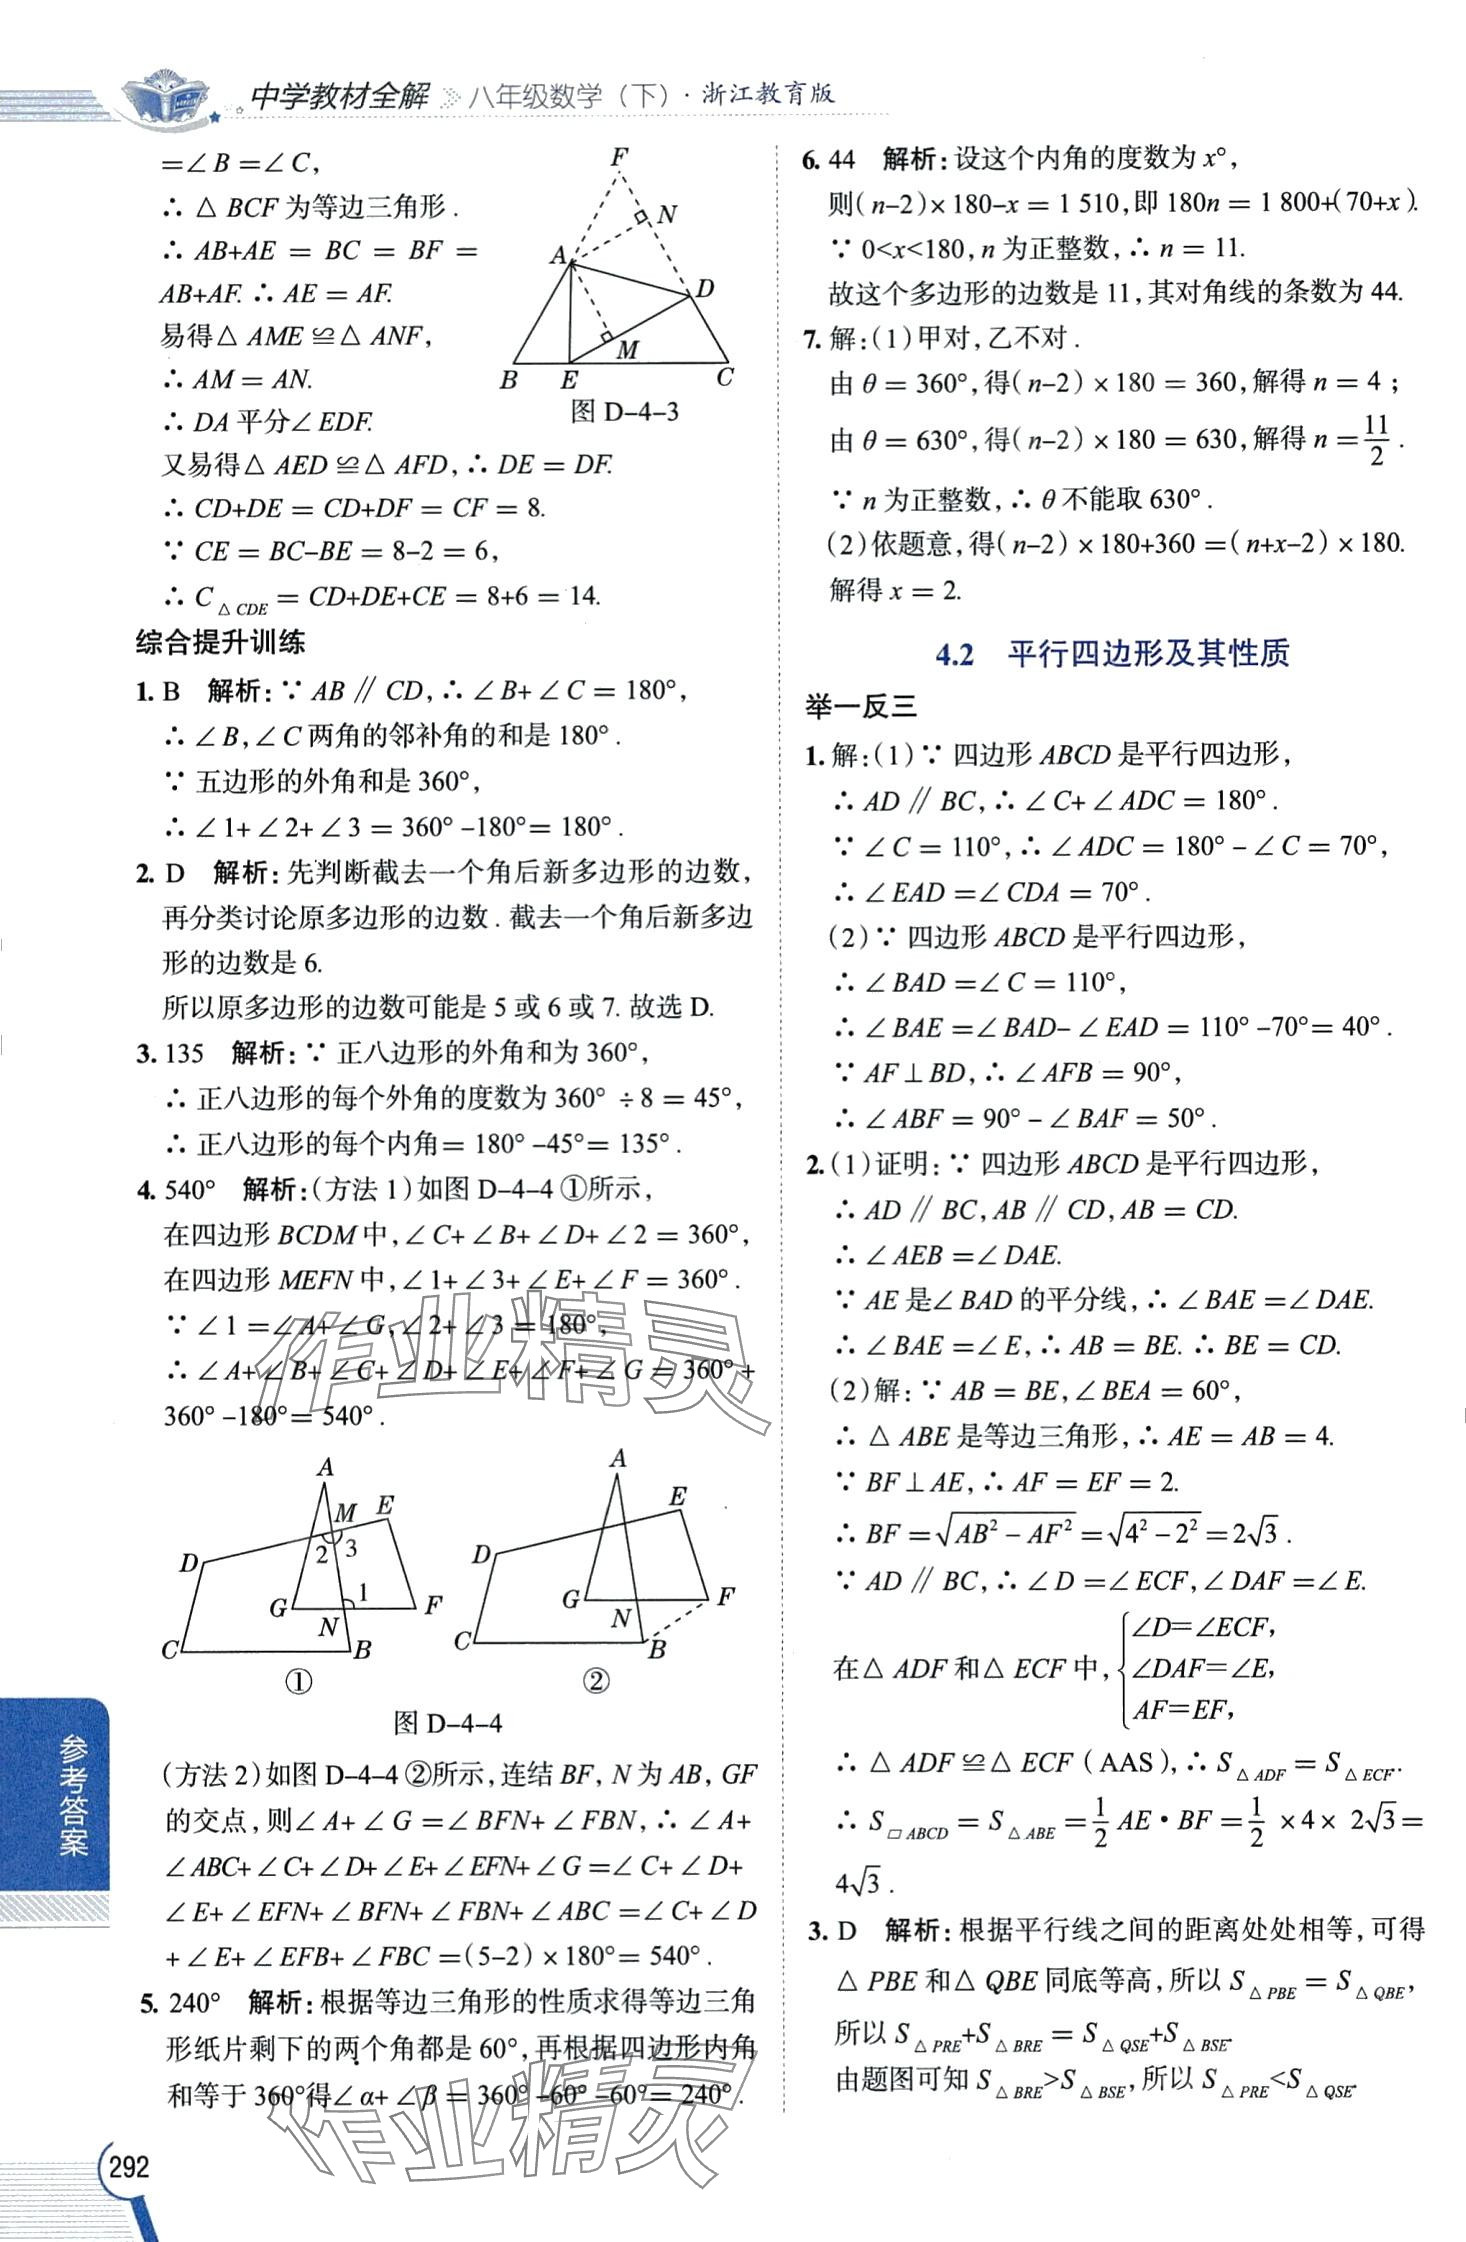 中学教材全解 八年级数学（下）·浙江教育版
=∠B=∠C,
∴△BCF为等边三角形.
∴AB+AE=BC=BF=
AB+AF.∴AE=AF.
易得△AME≌△ANF,
∴AM=AN.
∴DA平分∠EDF.
又易得△AED≌△AFD,∴DE=DF.
∴CD+DE=CD+DF=CF=8.
∵CE=BC-BE=8-2=6,
∴C△CDE=CD+DE+CE=8+6=14.
F
N
A
D
M
B E C
图 D-4-3
综合提升训练
1. B 解析:∵AB∥CD,∴∠B+∠C=180°,
∴∠B,∠C两角的邻补角的和是180°.
∵五边形的外角和是360°,
∴∠1+∠2+∠3=360°-180°=180°.
2. D 解析:先判断截去一个角后新多边形的边数,
再分类讨论原多边形的边数.截去一个角后新多边
形的边数是6.
所以原多边形的边数可能是5或6或7.故选D.
3. 135 解析:∵正八边形的外角和为360°,
∴正八边形的每个外角的度数为360°÷8=45°,
∴正八边形的每个内角=180°-45°=135°.
4. 540° 解析:(方法1)如图D-4-4①所示,
在四边形BCDM中,∠C+∠B+∠D+∠2=360°,
在四边形MEFN中,∠1+∠3+∠E+∠F=360°.
∵∠1=∠A+∠G,∠2+∠3=180°,
∴∠A+∠B+∠C+∠D+∠E+∠F+∠G=360°+
360°-180°=540°.
A
M E
D 2 3
G 1 F
N
C B
①
A
E
D
G N F
C B
②
图 D-4-4
(方法2)如图D-4-4②所示,连结BF,N为AB,GF
的交点,则∠A+∠G=∠BFN+∠FBN,∴∠A+
∠ABC+∠C+∠D+∠E+∠EFN+∠G=∠C+∠D+
∠E+∠EFN+∠BFN+∠FBN+∠ABC=∠C+∠D
+∠E+∠EFB+∠FBC=(5-2)×180°=540°.
5. 240° 解析:根据等边三角形的性质求得等边三角
形纸片剩下的两个角都是60°,再根据四边形内角
和等于360°得∠α+∠β=360°-60°-60°=240°.
6. 44 解析:设这个内角的度数为x°,
则(n-2)×180-x=1 510,即180n=1 800+(70+x).
∵0<x<180,n为正整数,∴n=11.
故这个多边形的边数是11,其对角线的条数为44.
7. 解:(1)甲对,乙不对.
由θ=360°,得(n-2)×180=360,解得n=4;
由θ=630°,得(n-2)×180=630,解得n=11/2.
∵n为正整数,∴θ不能取630°.
(2)依题意,得(n-2)×180+360=(n+x-2)×180.
解得x=2.
4.2 平行四边形及其性质
举一反三
1. 解:(1)∵四边形ABCD是平行四边形,
∴AD∥BC,∴∠C+∠ADC=180°.
∵∠C=110°,∴∠ADC=180°-∠C=70°,
∴∠EAD=∠CDA=70°.
(2)∵四边形ABCD是平行四边形,
∴∠BAD=∠C=110°,
∴∠BAE=∠BAD-∠EAD=110°-70°=40°.
∵AF⊥BD,∴∠AFB=90°,
∴∠ABF=90°-∠BAF=50°.
2. (1)证明:∵四边形ABCD是平行四边形,
∴AD∥BC,AB∥CD,AB=CD.
∴∠AEB=∠DAE.
∵AE是∠BAD的平分线,∴∠BAE=∠DAE.
∴∠BAE=∠E,∴AB=BE.∴BE=CD.
(2)解:∵AB=BE,∠BEA=60°,
∴△ABE是等边三角形,∴AE=AB=4.
∵BF⊥AE,∴AF=EF=2.
∴BF=√(AB²-AF²)=√(4²-2²)=2√3.
∵AD∥BC,∴∠D=∠ECF,∠DAF=∠E.
在△ADF和△ECF中,{∠D=∠ECF,
∠DAF=∠E,
AF=EF,
∴△ADF≌△ECF(AAS),∴S△ADF=S△ECF.
∴S▱ABCD=S△ABE=1/2AE·BF=1/2×4×2√3=
4√3.
3. D 解析:根据平行线之间的距离处处相等,可得
△PBE和△QBE同底等高,所以S△PBE=S△QBE,
所以S△PRE+S△BRE=S△QSE+S△BSE.
由题图可知S△BRE>S△BSE,所以S△PRE<S△QSE.
参考答案
292
作业精灵
作业精灵